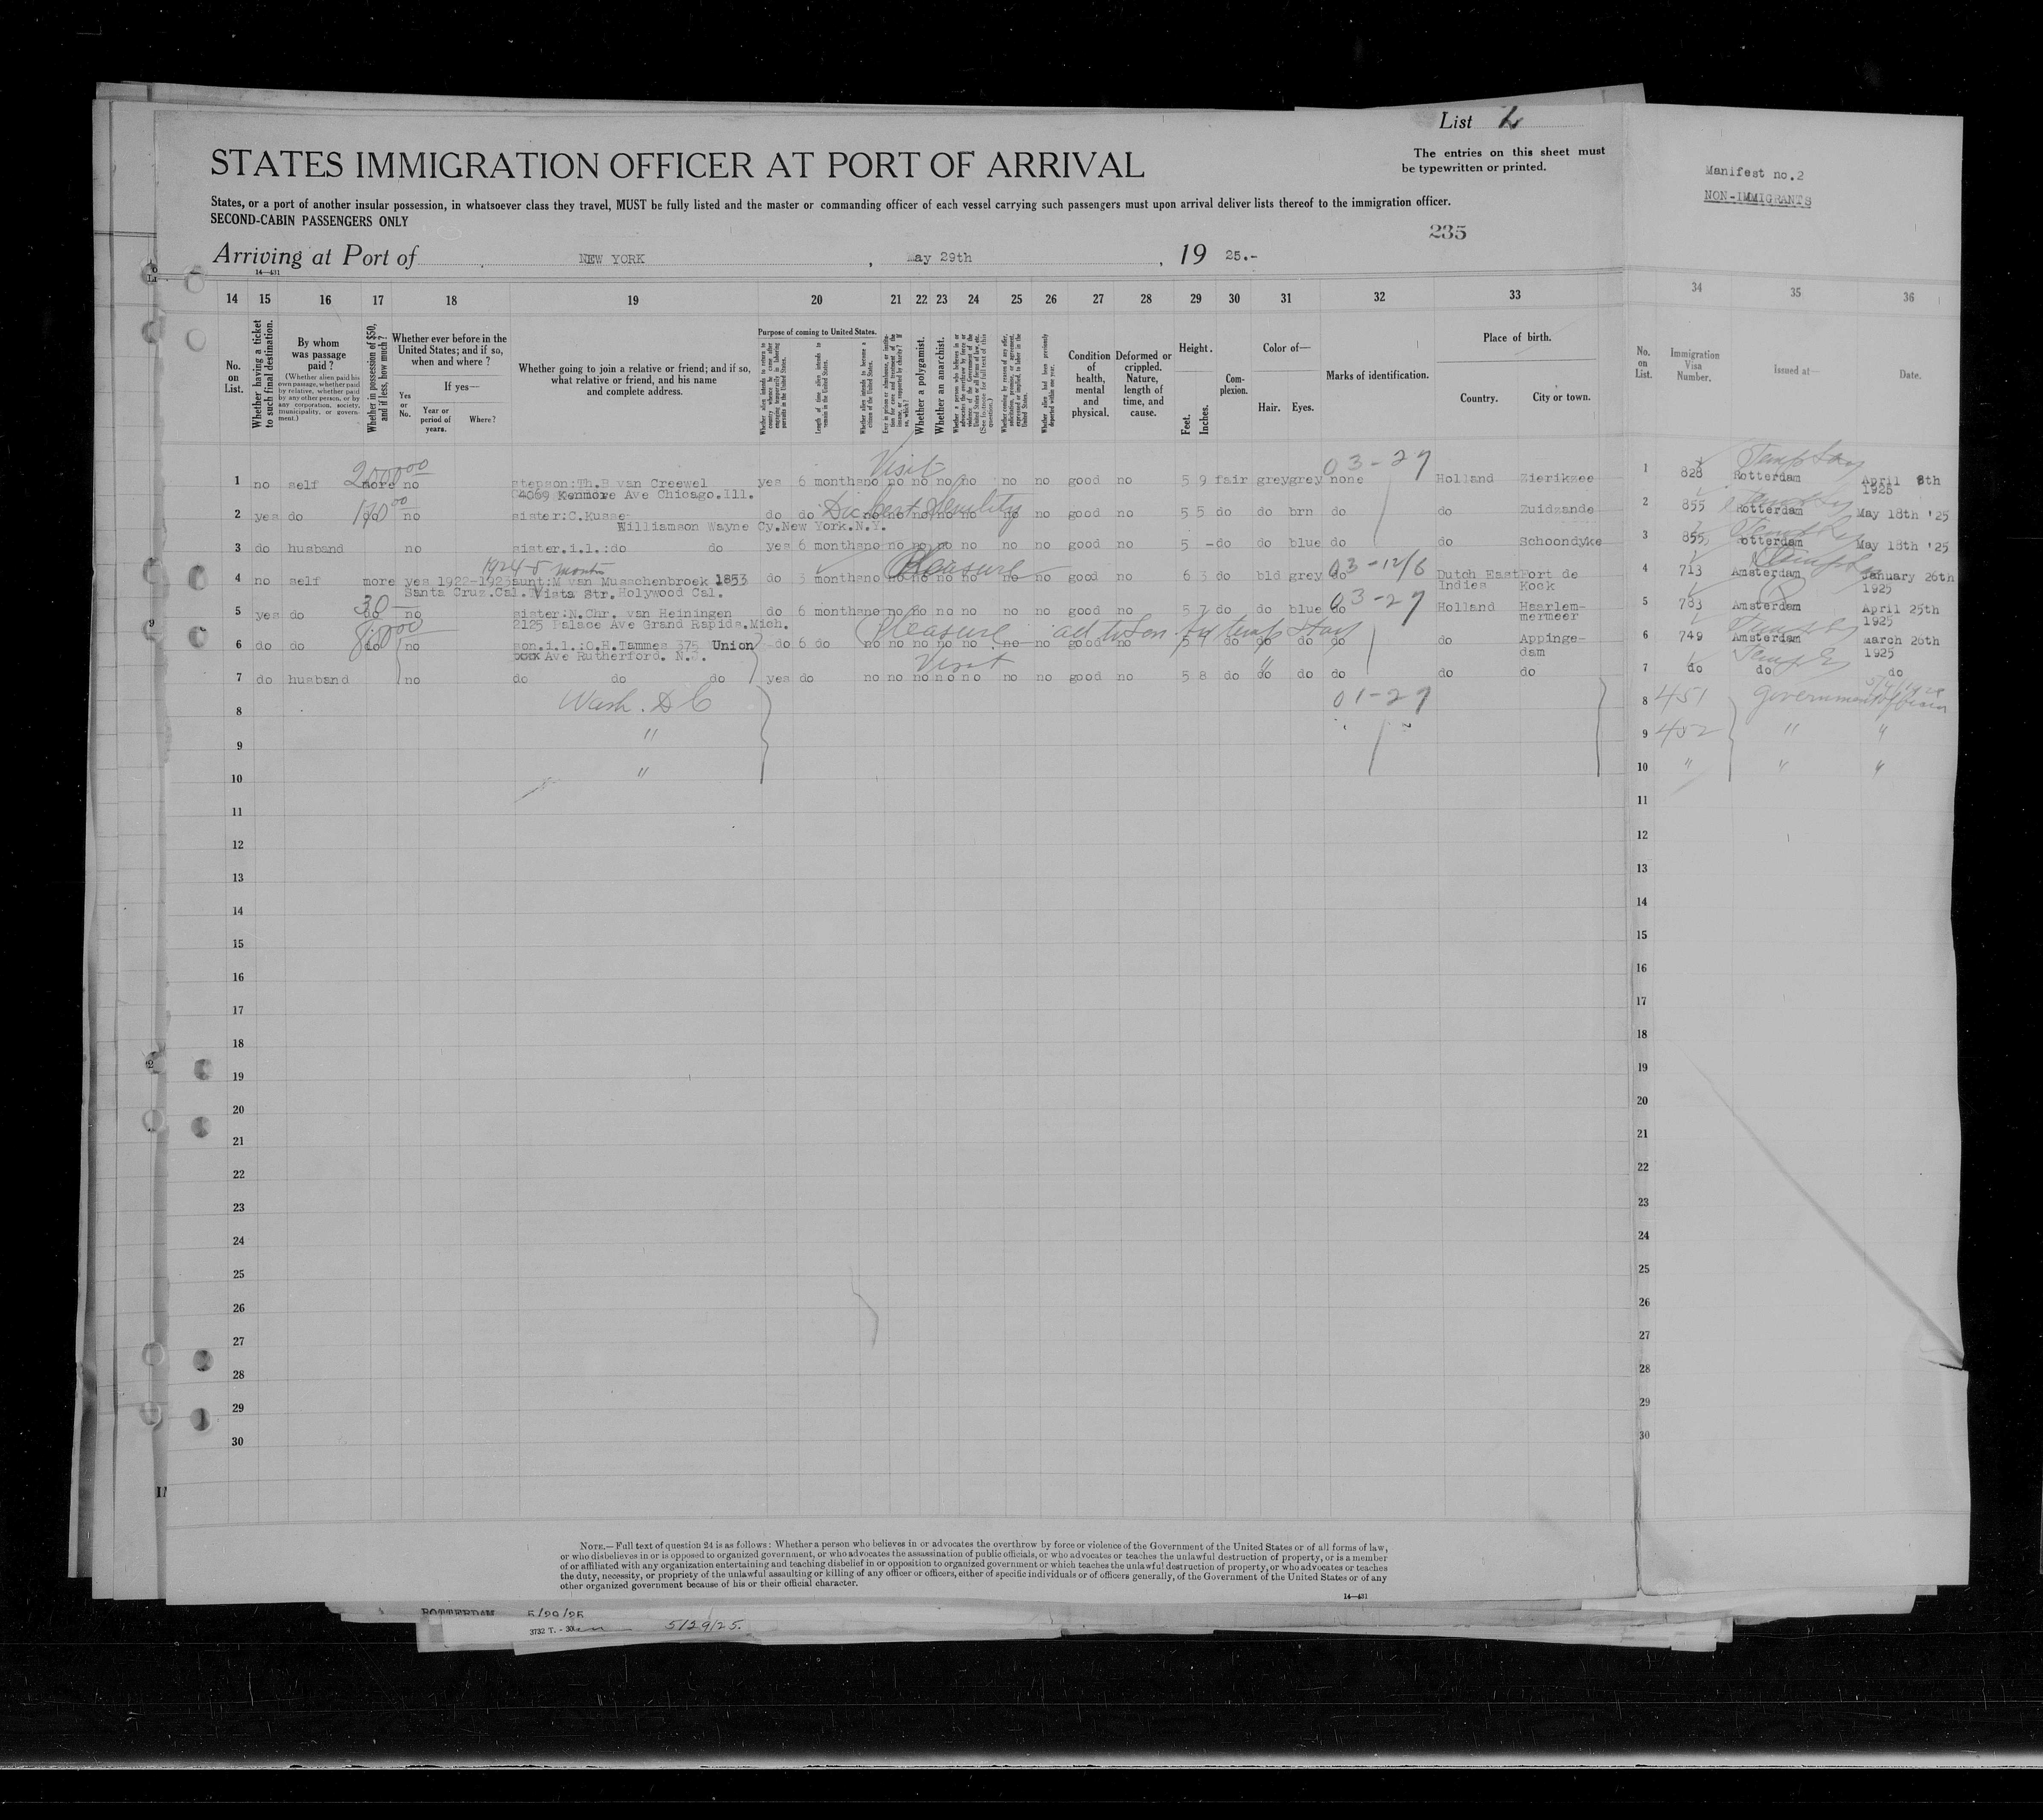 List 2
STATES IMMIGRATION OFFICER AT PORT OF ARRIVAL
The entries on this sheet must
be typewritten or printed.
Manifest no.2
NON-IMMIGRANTS
States, or a port of another insular possession, in whatsoever class they travel, MUST be fully listed and the master or commanding officer of each vessel carrying such passengers must upon arrival deliver lists thereof to the immigration officer.
SECOND-CABIN PASSENGERS ONLY
235
Arriving at Port of NEW YORK , May 29th , 19 25.-
14—431
14 15 16 17 18 19 20 21 22 23 24 25 26 27 28 29 30 31 32 33 34 35 36
No. on List.
Whether having a ticket to such final destination.
By whom was passage paid?
(Whether alien paid his own passage, whether paid by relative, whether paid by any other person, or by any corporation, society, municipality, or government.)
Whether in possession of $50, and if less, how much?
Whether ever before in the United States; and if so, when and where?
Yes or No.
If yes—
Year or period of years.
Where?
Whether going to join a relative or friend; and if so, what relative or friend, and his name and complete address.
Purpose of coming to United States.
Length of time alien intends to remain in the United States.
Whether alien intends to become a citizen of the United States.
Whether a polygamist.
Whether an anarchist.
Condition of health, mental and physical.
Deformed or crippled. Nature, length of time, and cause.
Height.
Feet. Inches.
Complexion.
Color of—
Hair. Eyes.
Marks of identification.
Place of birth.
Country. City or town.
No. on List.
Immigration Visa Number.
Issued at—
Date.
Visit 03-27
1 no self 2000 00 more no stepson:Th.B van Creewel yes 6 months no no no no no no no good no 5 9 fair grey grey none Holland Zierikzee 1 828 Rotterdam April 8th
4069 Kenmore Ave Chicago.Ill. 1925
2 yes do 120 00 do no sister:C.Kusse do do no no no no no no no good no 5 5 do do brn do do Zuidzande 2 855 Rotterdam May 18th '25
Williamson Wayne Cy.New York.N.Y.
3 do husband no sister.i.l.:do do yes 6 months no no no no no no no good no 5 - do do blue do do Schoondyke 3 855 Rotterdam May 18th '25
1924-5 months Pleasure 03-12/6
4 no self more yes 1922-1923 aunt:M van Musschenbroek 1853 do 3 months no no no no no no no good no 6 3 do bld grey do Dutch East Fort de 4 713 Amsterdam January 26th
Santa Cruz.Cal. Vista Str.Holywood Cal. Indies Kock 1925
30 03-27
5 yes do do no sister:N.Chr. van Heiningen do 6 months no no no no no no no good no 5 7 do do blue do Holland Haarlem- 5 783 Amsterdam April 25th
2125 Palace Ave Grand Rapids.Mich. mermeer 1925
Pleasure
6 do do 800 00 do no son.i.l.:O.H.Tammes 375 Union do 6 do no no no no no no no good no 5 4 do do do do do Appinge- 6 749 Amsterdam March 26th
Ave Rutherford. N.J. dam 1925
Visit
7 do husband no do do do yes do no no no no no no no good no 5 8 do do do do do do 7 do do do
8 Wash. D C 01-27 8 451 government
9 " 9 452 " "
10 " 10 " " "
11 11
12 12
13 13
14 14
15 15
16 16
17 17
18 18
19 19
20 20
21 21
22 22
23 23
24 24
25 25
26 26
27 27
28 28
29 29
30 30
NOTE.—Full text of question 24 is as follows: Whether a person who believes in or advocates the overthrow by force or violence of the Government of the United States or of all forms of law,
or who disbelieves in or is opposed to organized government, or who advocates the assassination of public officials, or who advocates or teaches the unlawful destruction of property, or is a member
of or affiliated with any organization entertaining and teaching disbelief in or opposition to organized government or which teaches the unlawful destruction of property, or who advocates or teaches
the duty, necessity, or propriety of the unlawful assaulting or killing of any officer or officers, either of specific individuals or of officers generally, of the Government of the United States or of any
other organized government because of his or their official character.
14—431
ROTTERDAM 5/29/25
5/29/25.